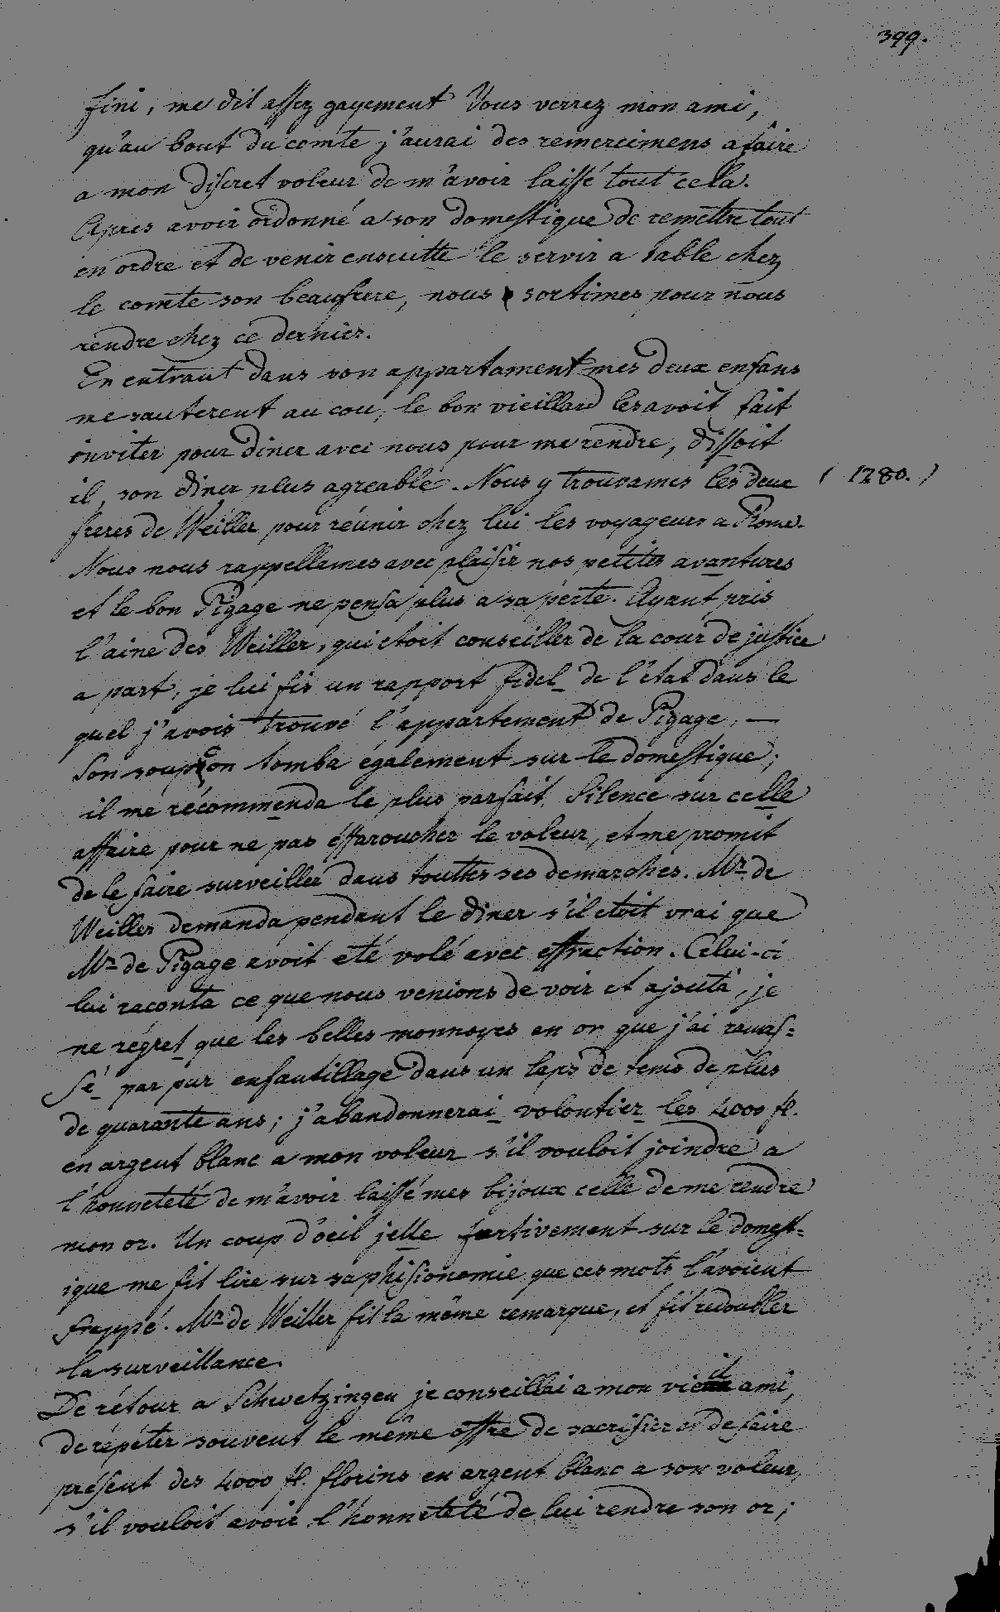 399.
fini, me dit assez gayement Vous verrez mon ami,
qu'au bout du comte j'aurai des remercimens a faire
a mon discret voleur de m'avoir laissé tout cela.
Apres avoir ordonné a son domestique de remettre tout
en ordre et de venir ensuitte le servir a table chez
le comte son beaufrere, nous sortimes pour nous
rendre chez ce dernier.
En entrant dans son appartament mes deux enfans
me sauterent au cou; le bon vieillard les avoit fait
inviter pour diner avec nous pour me rendre, dissoit
il, son diner plus agreable. Nous y trouvames les deux
( 1780. )
freres de Weiller pour réunir chez lui les voyageurs a Rome.
Nous nous rappellames avec plaisir nos petites avantures
et le bon Pigage ne pensa plus a sa perte. Ayant pris
l'ainé des Weiller, qui etoit conseiller de la cour de justice
a part, je lui fis un rapport fidel de l'état dans le
quel j'avois trouvé l'appartement de Pigage, —
Son soupçon tomba également sur le domestique;
il me récommenda le plus parfait Silence sur celle
affaire pour ne pas éffaroucher le voleur, et me promit
de le faire surveiller dans touttes ses demarches. Mr. de
Weiller demanda pendant le diner s'il etoit vrai que
Mr. de Pigage avoit eté volé avec effraction. Celui-ci
lui raconta ce que nous venions de voir et ajouta, je
ne régret que les belles monnoyes en or que j'ai ramas=
sé par pur enfantillage dans un laps de tems de plus
de quarante ans; j'abandonnerai volontier les 4000 fl.
en argent blanc a mon voleur s'il vouloit joindre a
l'honneteté de m'avoir laissé mes bijoux celle de me rendre
mon or. Un coup d'oeil jelle furtivement sur le domest=
ique me fit lire sur sa phisionomie que ces mots l'avoient
frappé. Mr. de Weiller fit la même remarque, et fit redoubler
la surveillance.
De rétour a Schwetzingen je conseillai a mon vieil ami,
de répéter souvent le même offre de sacrifier et de faire
présent des 4000 fl. florins en argent blanc a son voleur,
s'il vouloit avoir l'honneteté de lui rendre son or;